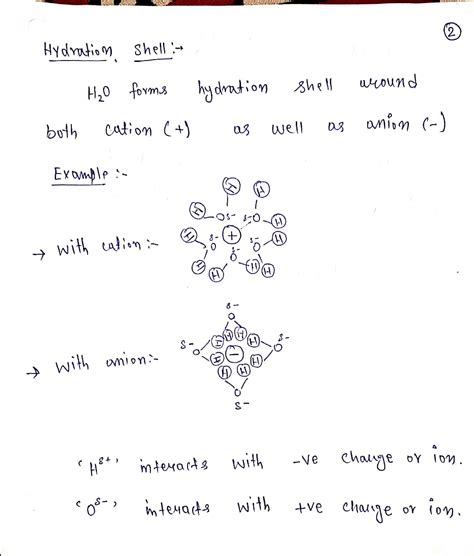 2
Hydration Shell :→
H₂O forms hydration shell around
both cation (+) as well as anion (-)
Example :-
H H
H Oδ- δ-O H
→ with cation :- H δ- O + δ- O H
H H δ- O H H
δ-
O
→ with anion:- δ- O H H H H - H H H H O δ-
O
δ-
'Hδ+' interacts with -ve charge or ion.
'Oδ-' interacts with +ve charge or ion.